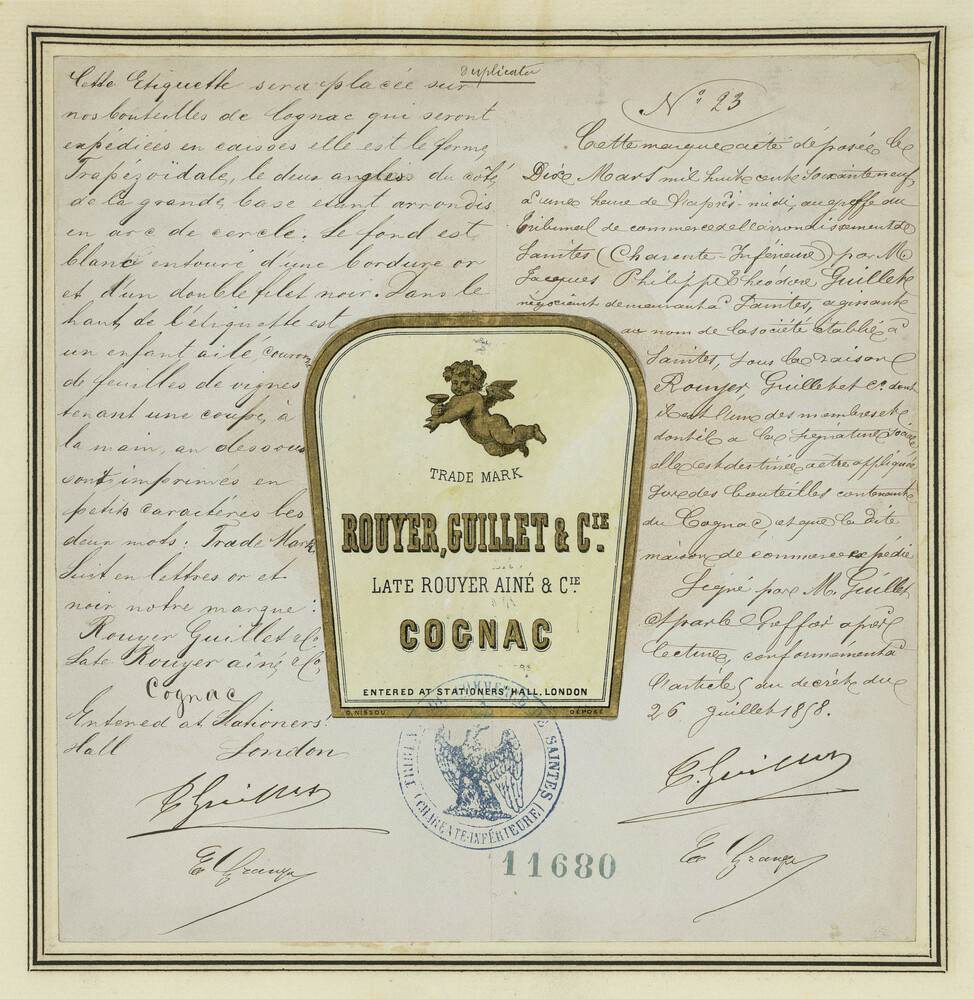 Duplicata
Cette Etiquette sera placée sur
nos bouteilles de Cognac qui seront
expédiées en caisses elle est de forme
Trapézoïdale, le deux angles du côté
de la grande base etant arrondis
en arc de cercle. Le fond est
blanc entouré d'une bordure or
et d'un double filet noir. Dans le
haut de l'étiquette est
un enfant ailé, couronné
de feuilles de vignes
tenant une coupe, à
la main, au dessous
sont imprimés en
petits caractères les
deux mots: Trade Mark
Suit en lettres or et
noir notre marque:
Rouyer Guillet & Co.
Late Rouyer ainé & Co.
Cognac
Entered at Stationers'
Hall London
C. Guillet
E Grange
TRADE MARK
ROUYER, GUILLET & CIE.
LATE ROUYER AINÉ & CIE.
COGNAC
ENTERED AT STATIONERS' HALL, LONDON
G. NISSOU DÉPOSÉ
TRIBUNAL DE COMMERCE DE SAINTES
(CHARENTE-INFÉRIEURE)
11680
No 23
Cette marque a été déposée le
Dix Mars mil huit cent soixante neuf,
à une heure de l'après-midi, au greffe du
Tribunal de commerce de l'arrondissement de
Saintes (Charente-Inférieure) par M.
Jacques Philippe Théodore Guillet
négociant demeurant à Saintes, agissant
au nom de la société établie à
Saintes, sous la raison
Rouyer, Guillet et Cie dont
il est l'un des membres et
dont il a la signature sociale
elle est destinée a être appliquée
sur des bouteilles contenant
du Cognac et que la dite
maison de commerce expédie
Signé par M. Guillet
et par le Greffier après
lecture, conformement à
l'article 5 du decret du
26 Juillet 1858.
C. Guillet
E Grange